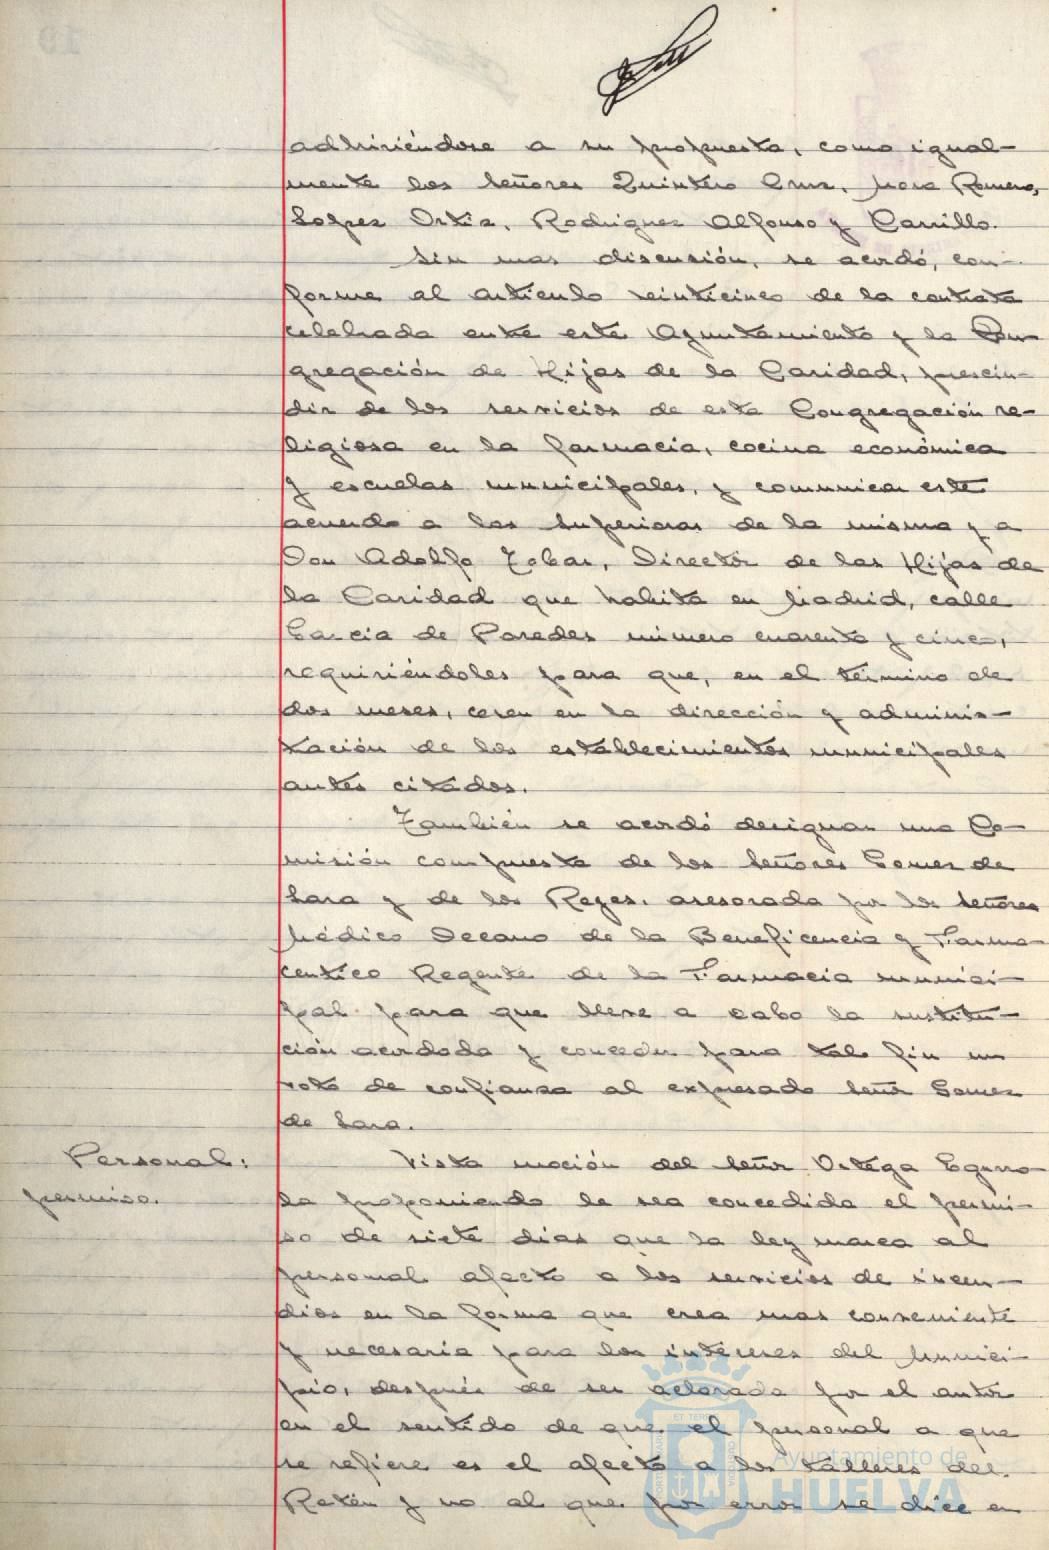 adhiriéndose a su propuesta, como igual-
mente los señores Quintero Cruz, Jara Romero,
Lopez Ortiz, Rodriguez Alfonso y Carrillo.
Sin mas discusión, se acordó, con-
forme al artículo veinticinco de la contrata
celebrada entre este Ayuntamiento y la Con-
gregación de Hijas de la Caridad, prescin-
dir de los servicios de esta Congregación re-
ligiosa en la farmacia, cocina económica
y escuelas municipales, y comunicar este
acuerdo a las Superioras de la misma y a
Don Adolfo Tobar, Director de las Hijas de
la Caridad que habita en Madrid, calle
Garcia de Paredes número cuarenta y cinco,
requiriéndoles para que, en el término de
dos meses, cesen en la dirección y adminis-
tración de los establecimientos municipales
antes citados.
También se acordó designar una Co-
misión compuesta de los señores Gomez de
Lara y de los Reyes, asesorada por los señores
Médico Decano de la Beneficencia y Farma-
ceutico Regente de la Farmacia munici-
pal para que lleve a cabo la sustitu-
ción acordada y conceder para tal fin un
voto de confianza al expresado señor Gomez
de Lara.
Personal:
permiso.
Vista moción del señor Ortega Eguro-
la proponiendo le sea concedida el permi-
so de siete dias que la ley marca al
personal afecto a los servicios de incen-
dios en la forma que crea mas conveniente
y necesaria para los intereses del Munici-
pio, después de ser aclarada por el autor
en el sentido de que el personal a que
se refiere es el afecto a los talleres del
Retén y no al que por error se dice en
Ayuntamiento de
HUELVA